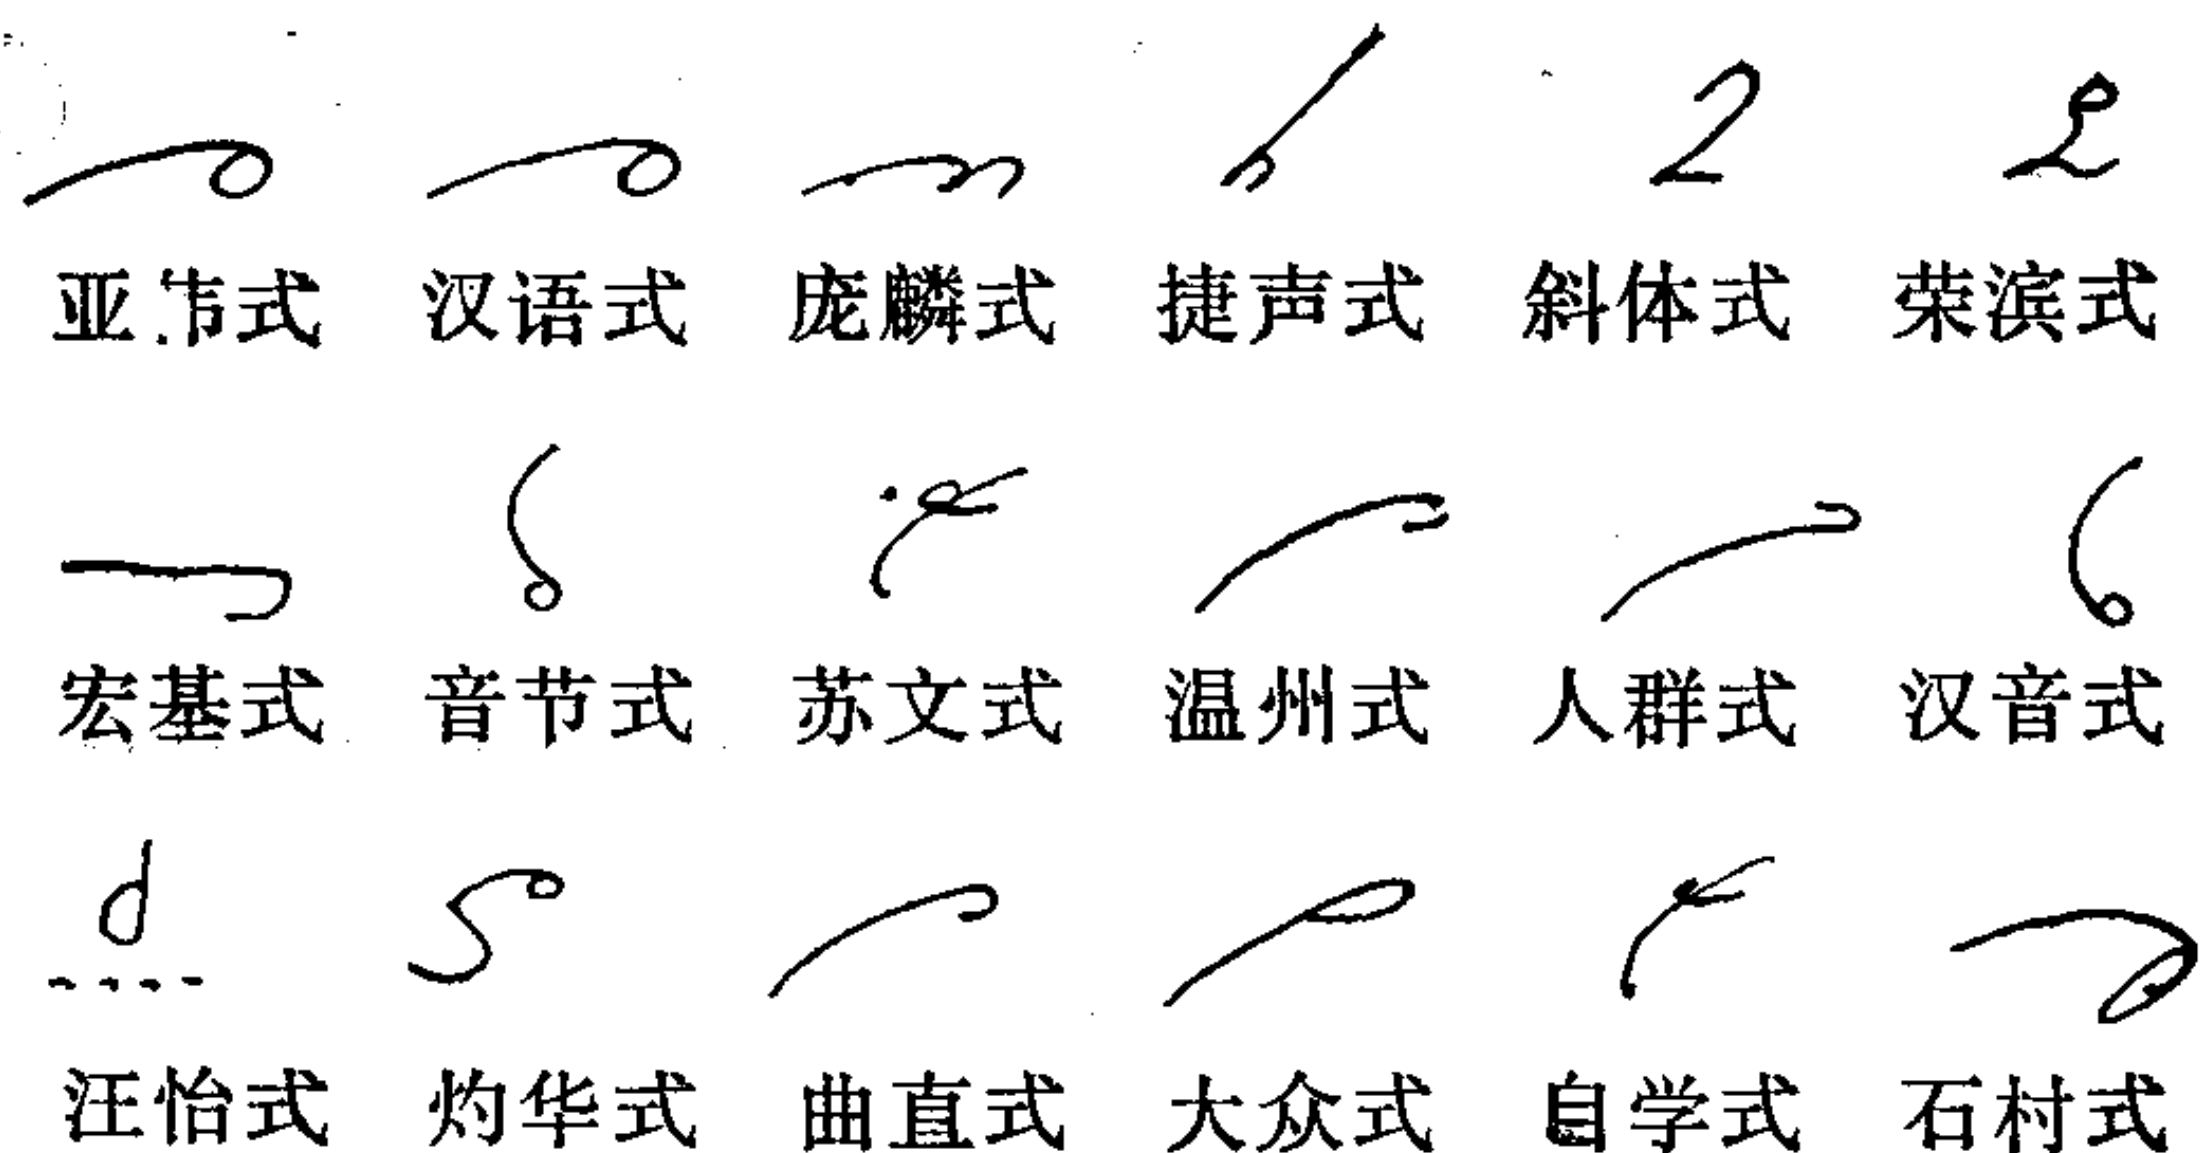 亚韦式 汉语式 庞麟式 捷声式 斜体式 荣滨式
宏基式 音节式 苏文式 温州式 人群式 汉音式
汪怡式 灼华式 曲直式 大众式 自学式 石村式